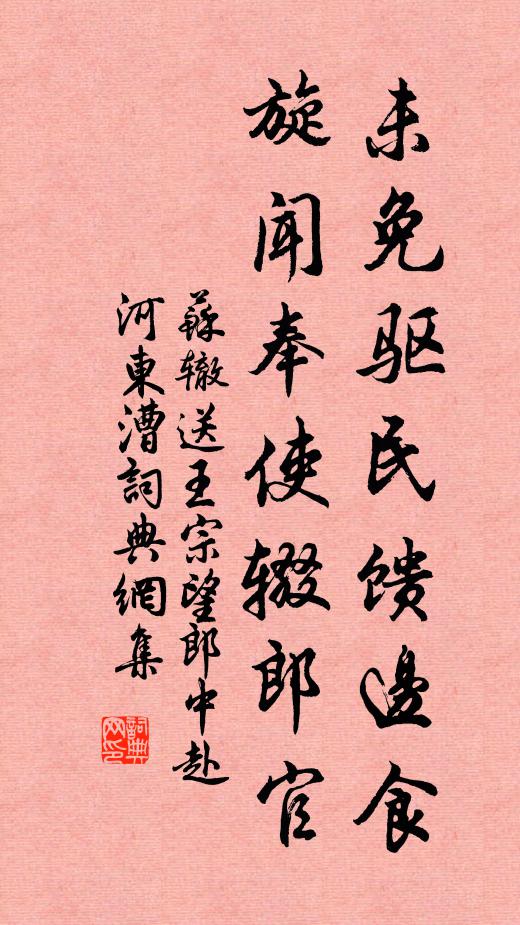 未免驱民馈邊食
旋闻奉使辍郎官
蘇辙送王宗望郎中赴
河東漕詞典網集
詞典
网印